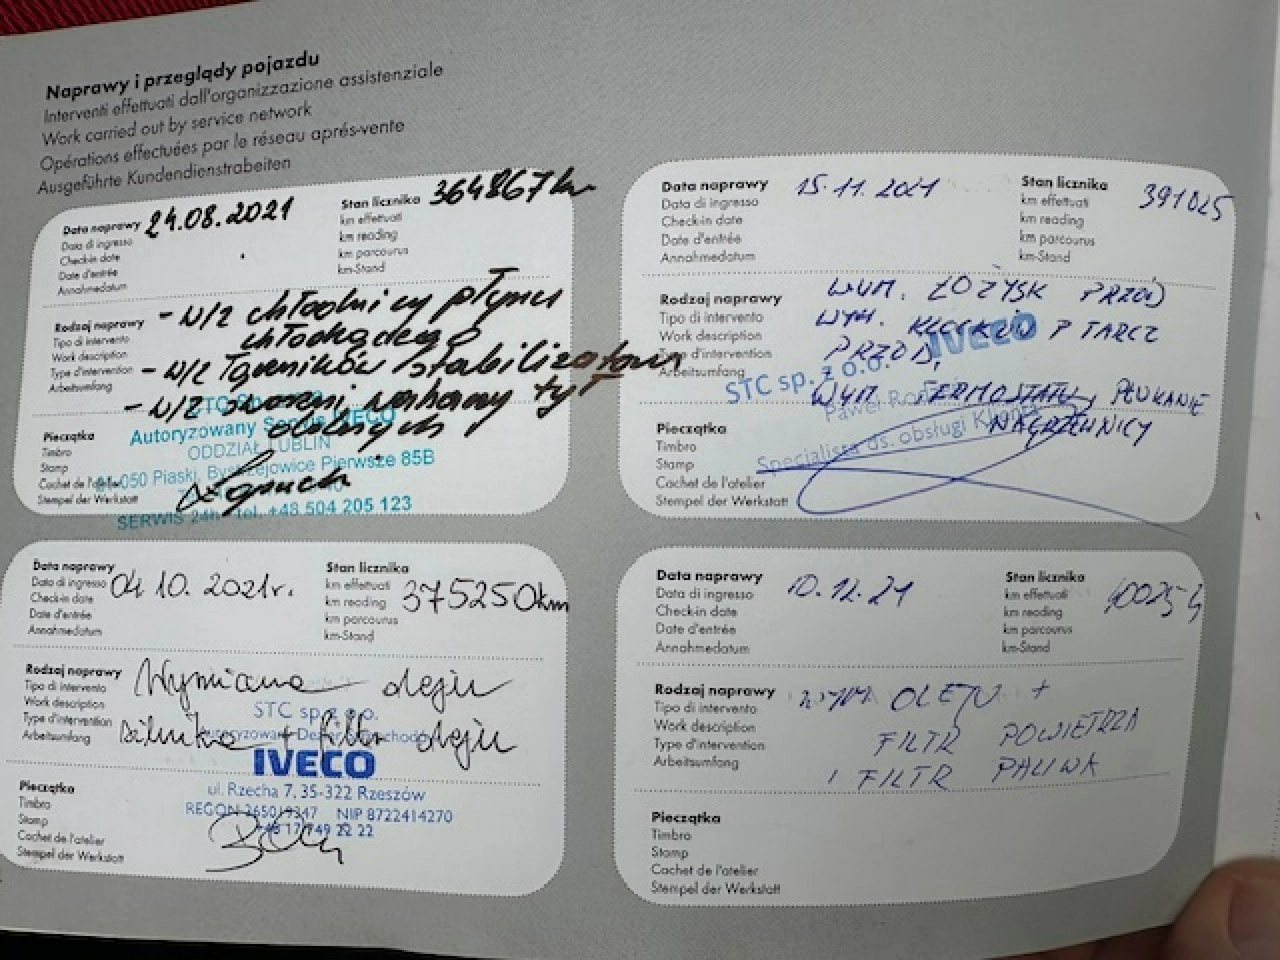 Naprawy i przeglądy pojazdu
Interventi effettuati dall'organizzazione assistenziale
Work carried out by service network
Opérations effectuées par le réseau aprés-vente
Ausgeführte Kundendienstrabeiten
Data naprawy 24.08.2021 Stan licznika 364867 km
Data di ingresso km effettuati
Check-in date km reading
Date d'entrée km parcourus
Annahmedatum km-Stand
Rodzaj naprawy - W/Z chłodnicy płynu
Tipo di intervento chłodzącego
Work description
Type d'intervention - W/Z łączników stabilizatora
Arbeitsumfang
- W/Z sworzni wahaczy tył
dolnych
STC Sp.
Autoryzowany Serwis IVECO
ODDZIAŁ LUBLIN
21-050 Piaski, Bystrzejowice Pierwsze 85B
SERWIS 24h - tel. +48 504 205 123
Pieczątka
Timbro
Stamp
Cachet de l'atelier
Stempel der Werkstatt
Data naprawy 04 10. 2021r. Stan licznika 375250km
Data di ingresso km effettuati
Check-in date km reading
Date d'entrée km parcourus
Annahmedatum km-Stand
Rodzaj naprawy Wymiana oleju
Tipo di intervento
Work description
Type d'intervention silnika + filtr oleju
Arbeitsumfang
STC sp. z o.o.
Autoryzowany Dealer Samochodów
IVECO
ul. Rzecha 7, 35-322 Rzeszów
REGON 265019347 NIP 8722414270
+48 17 749 22 22
Pieczątka
Timbro
Stamp
Cachet de l'atelier
Stempel der Werkstatt
Data naprawy 15.11.2021 Stan licznika 391025
Data di ingresso km effettuati
Check-in date km reading
Date d'entrée km parcourus
Annahmedatum km-Stand
Rodzaj naprawy WYM. ŁOŻYSK PRZÓD
Tipo di intervento WYM. KLOCKÓW TARCZ
Work description PRZÓD,
Type d'intervention
Arbeitsumfang
WYM TERMOSTATU, PŁUKANIE
NAGRZEWNICY
IVECO
STC sp. z o.o.
Paweł
Specjalista ds. obsługi Klienta
Pieczątka
Timbro
Stamp
Cachet de l'atelier
Stempel der Werkstatt
Data naprawy 10.12.21 Stan licznika
Data di ingresso km effettuati
Check-in date km reading
Date d'entrée km parcourus
Annahmedatum km-Stand
Rodzaj naprawy WYM OLEJU +
Tipo di intervento
Work description FILTR POWIETRZA
Type d'intervention
Arbeitsumfang I FILTR PALIWA
Pieczątka
Timbro
Stamp
Cachet de l'atelier
Stempel der Werkstatt